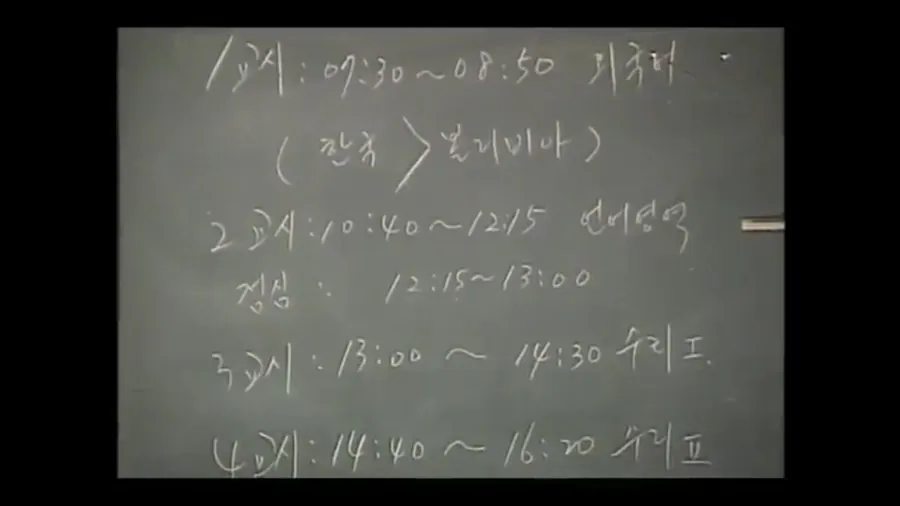 1교시: 07:30~08:50 외국어
(한국 > 볼리비아)
2교시: 10:40~12:15 언어영역
점심: 12:15~13:00
3교시: 13:00 ~ 14:30 수리 I
4교시: 14:40 ~ 16:20 수리 II